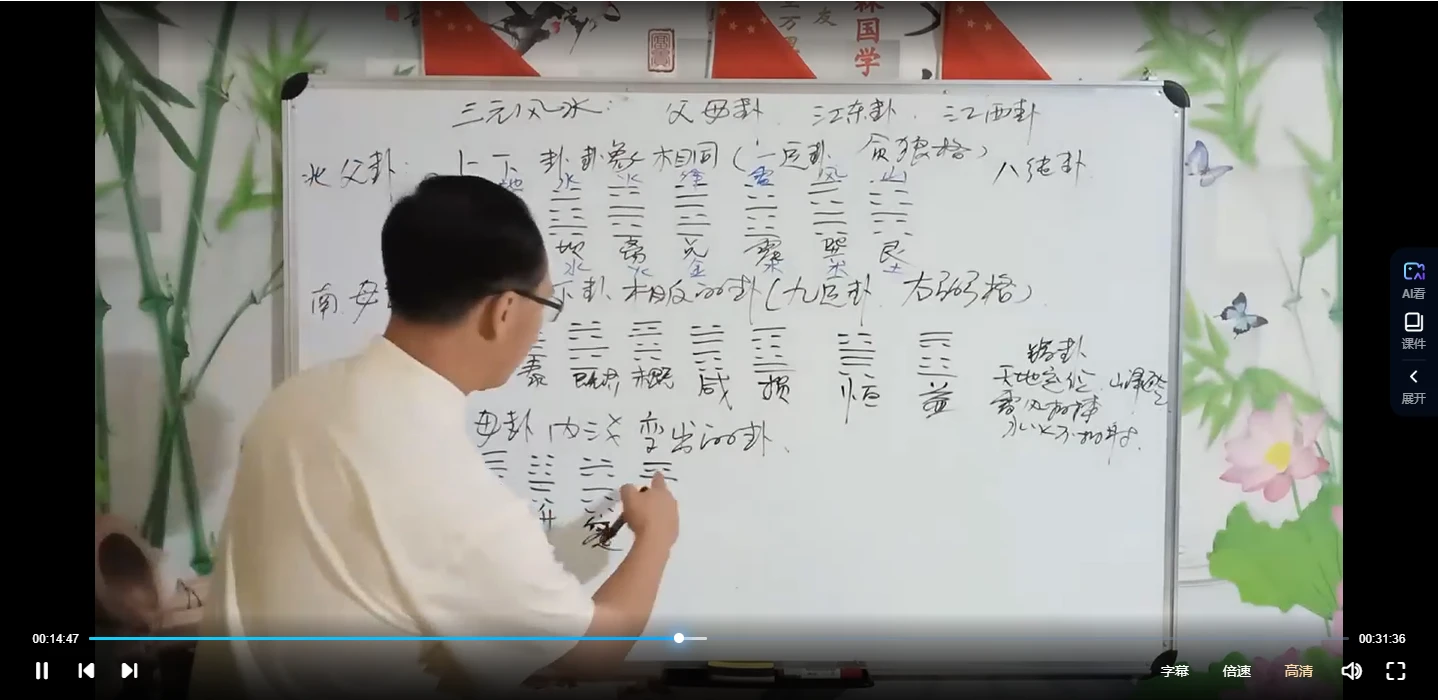 万 友
森国学
三元风水: 父母卦、江东卦、江西卦
北父卦: 上下 卦卦象相同(一运卦、贪狼格) 八纯卦
地 水 火 泽 雷 风 山
坎 离 兑 震 巽 艮
水 火 金 木 木 土
南母 下卦相反的卦(九运卦、右弼格)
泰 既济 未既 咸 损 恒 益
错卦
天地定位、山泽
雷风相薄
水火不相射
母卦内三爻变出的卦、
升 蹇
AI看
课件
展开
00:14:47 00:31:36
字幕 倍速 高清